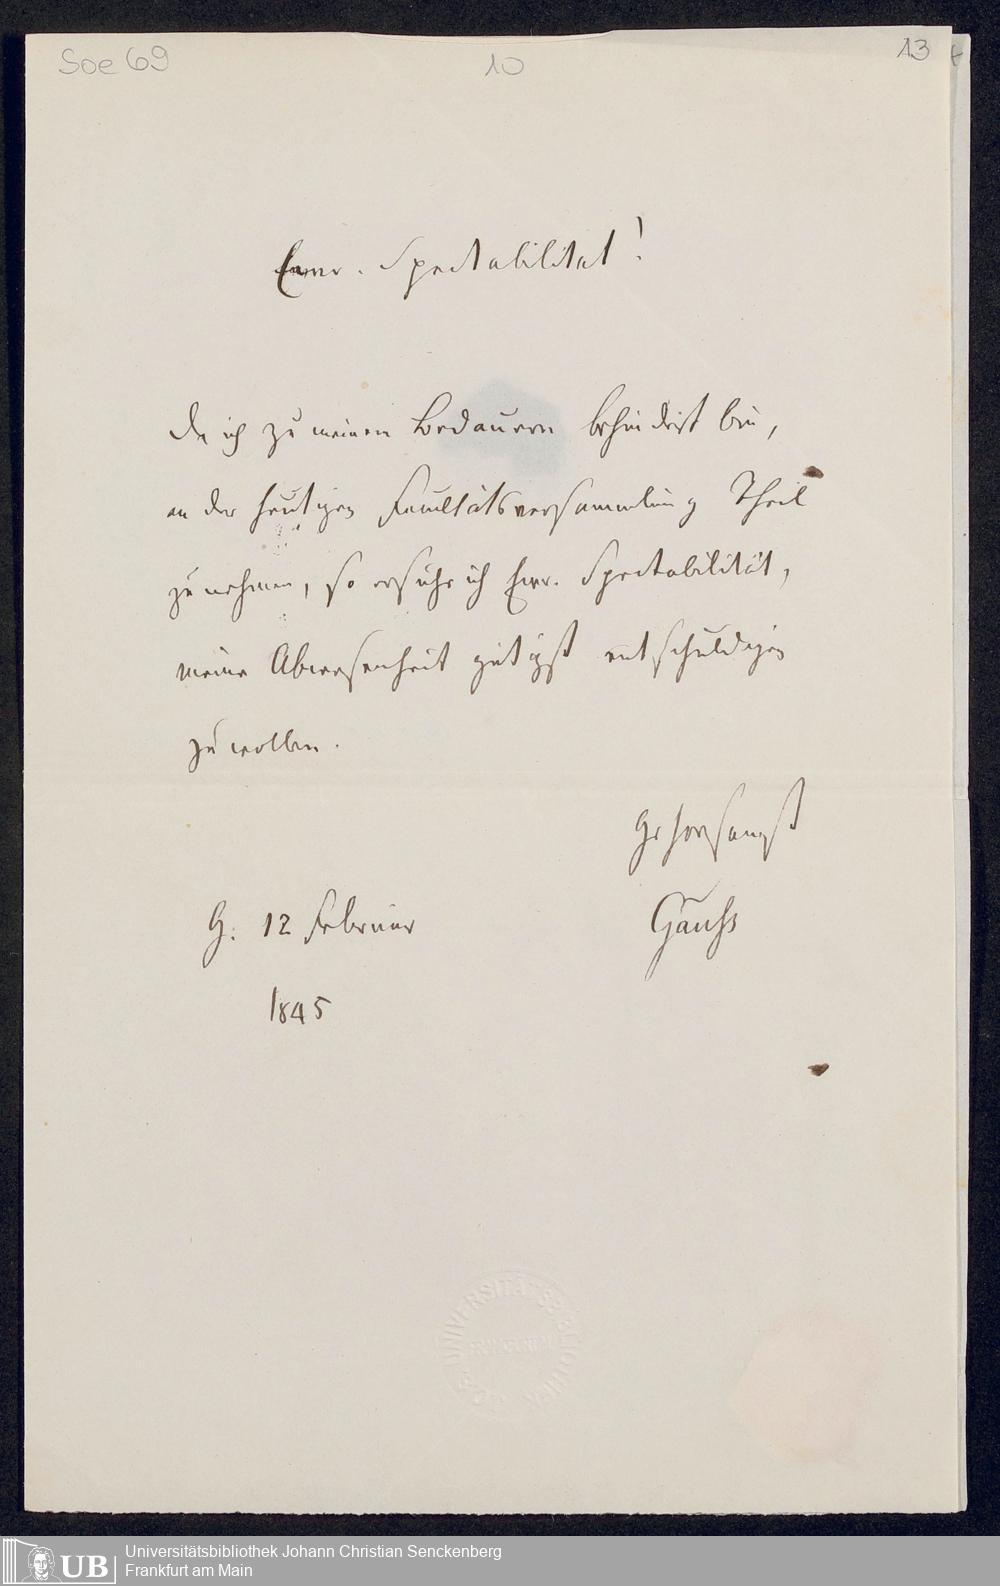 Soe 69
10
13
Ewr. Spectabilität!
Da ich zu meinem Bedauern behindert bin,
an der heutigen Facultätsversammlung Theil
zu nehmen, so ersuche ich Ewr. Spectabilität,
meine Abwesenheit gütigst entschuldigen
zu wollen.
Gehorsamst
G. 12 Februar
Gauß
1845
UNIVERSITÄTSBIBLIOTHEK
UB
Universitätsbibliothek Johann Christian Senckenberg
Frankfurt am Main